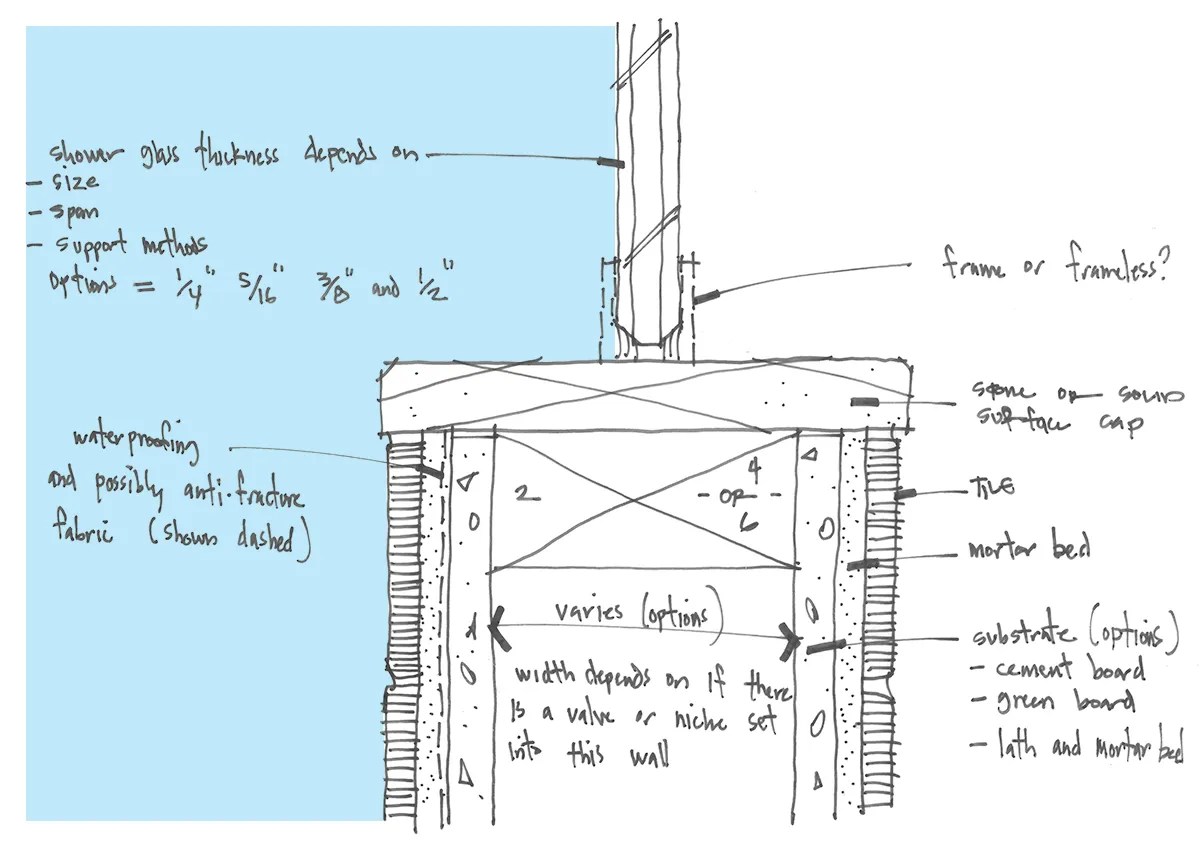 shower glass thickness depends on
- size
- span
- support methods
options = 1/4" 5/16" 3/8" and 1/2"
frame or frameless?
stone or solid
surface cap
waterproofing
and possibly anti-fracture
fabric (shown dashed)
2
4
- OR -
6
TILE
mortar bed
varies (options)
width depends on if there
is a valve or niche set
into this wall
substrate (options)
- cement board
- green board
- lath and mortar bed